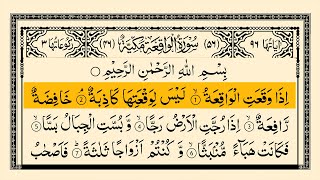 اٰيَاتُهَا ٩٦ (٥٦) سُوْرَةُ الْوَاقِعَةِ مَكِّيَّةٌ (٤٦) رُكُوْعَاتُهَا ٣
بِسْمِ اللّٰهِ الرَّحْمٰنِ الرَّحِيْمِ
اِذَا وَقَعَتِ الْوَاقِعَةُ ۝١ لَيْسَ لِوَقْعَتِهَا كَاذِبَةٌ ۝٢ خَافِضَةٌ
رَّافِعَةٌ ۝٣ اِذَا رُجَّتِ الْاَرْضُ رَجًّا ۝٤ وَّ بُسَّتِ الْجِبَالُ بَسًّا ۝٥
فَكَانَتْ هَبَآءً مُّنْۢبَثًّا ۝٦ وَّ كُنْتُمْ اَزْوَاجًا ثَلٰثَةً ۝٧ فَاَصْحٰبُ